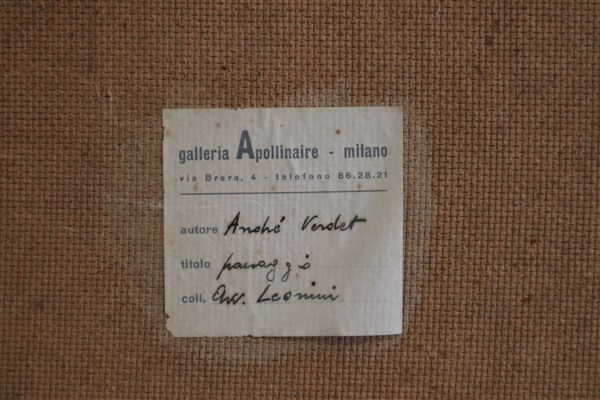 galleria Apollinaire - milano
via Brera, 4 - telefono 86.28.21
autore André Verdet
titolo paesaggio
coll. Avv. Leonini